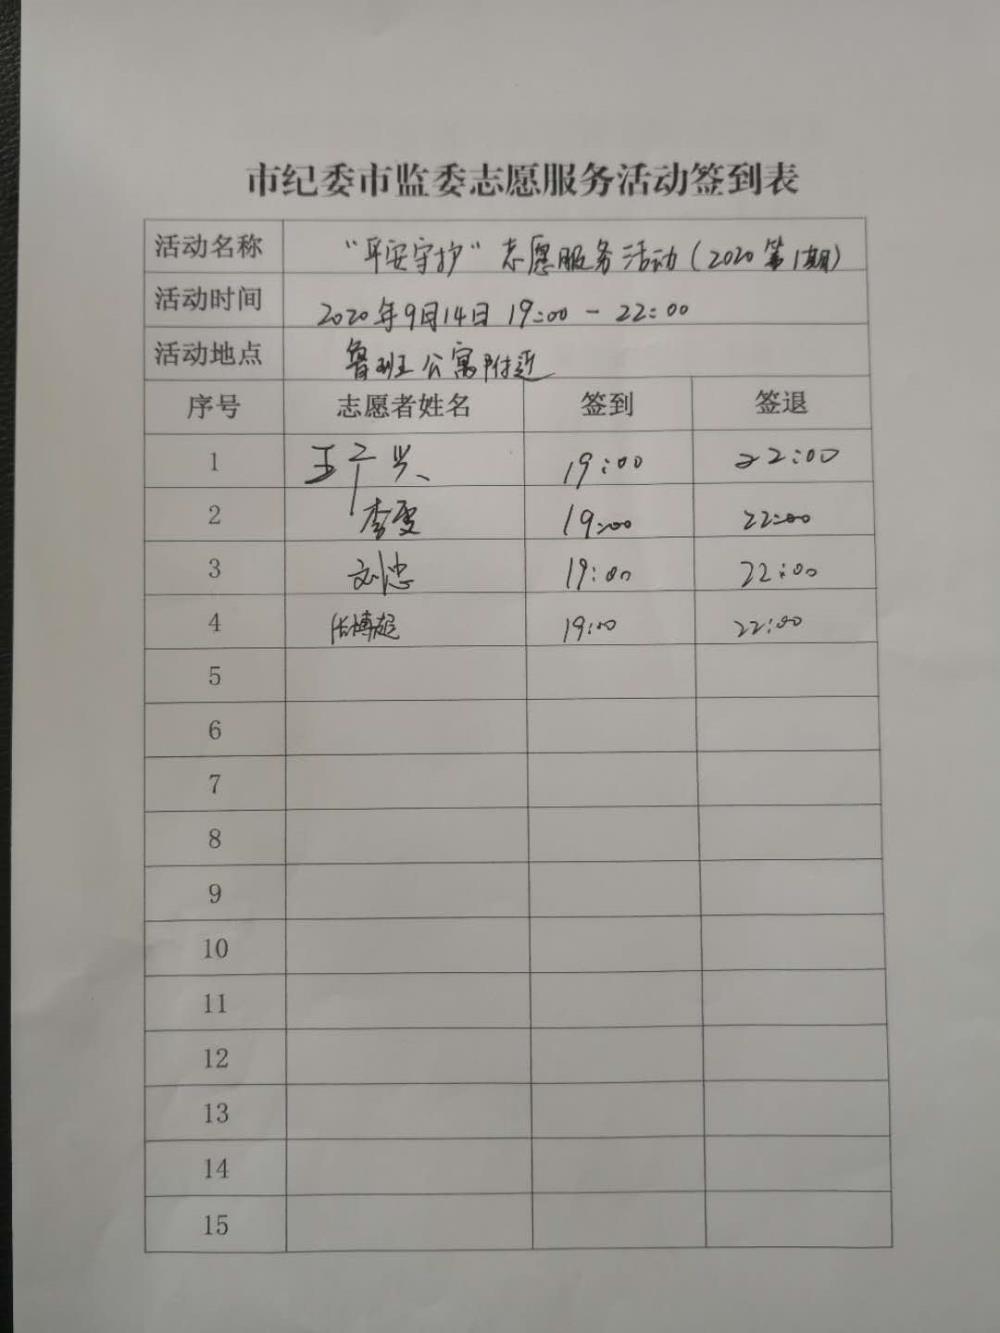 市纪委市监委志愿服务活动签到表
活动名称 “平安守护”志愿服务活动(2020第1期)
活动时间 2020年9月14日 19:00-22:00
活动地点 鲁班公寓附近
序号 志愿者姓名 签到 签退
1 19:00 22:00
2 李雯 19:00 22:00
3 刘忠 19:00 22:00
4 19:00 22:00
5
6
7
8
9
10
11
12
13
14
15